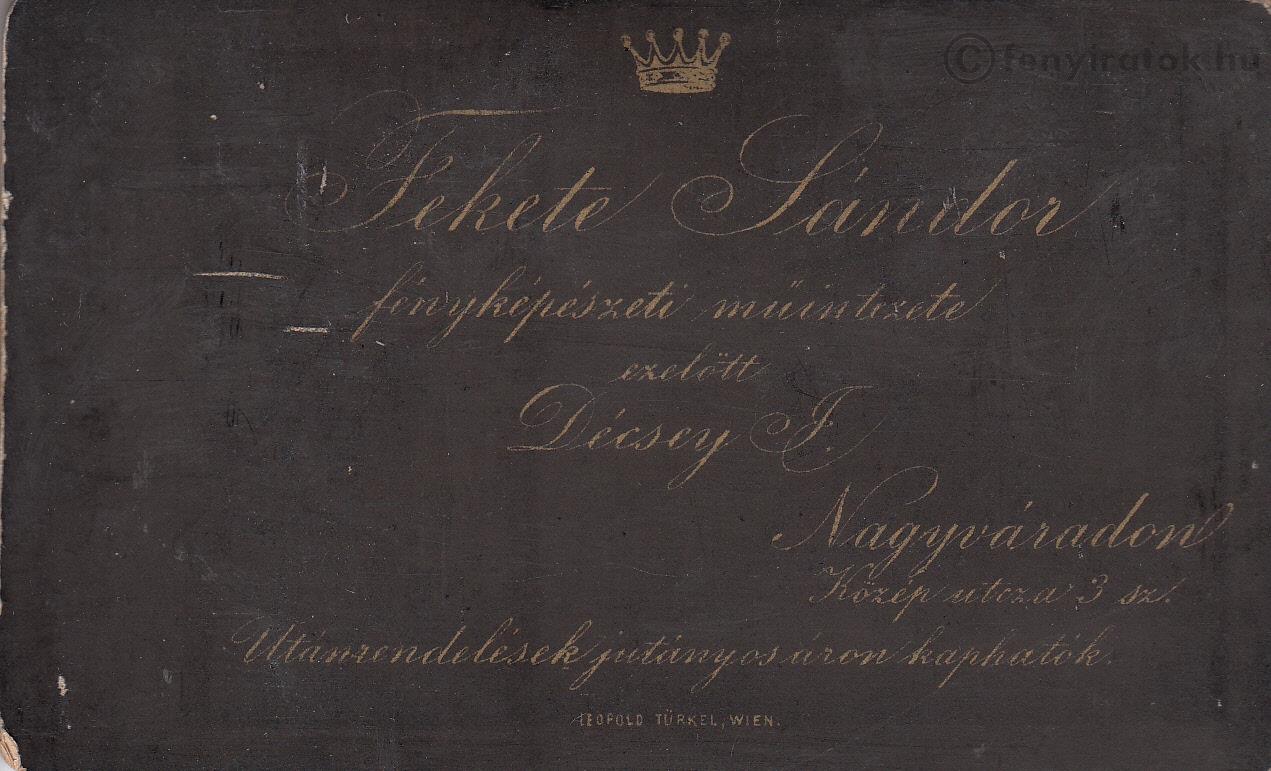 © fenyiratok.hu
Fekete Sándor
fényképészeti műintezete
ezelött
Décsey J.
Nagyváradon
Közép utcza 3 sz.
Utánrendelések jutányos áron kaphatók.
LEOPOLD TÜRKEL, WIEN.